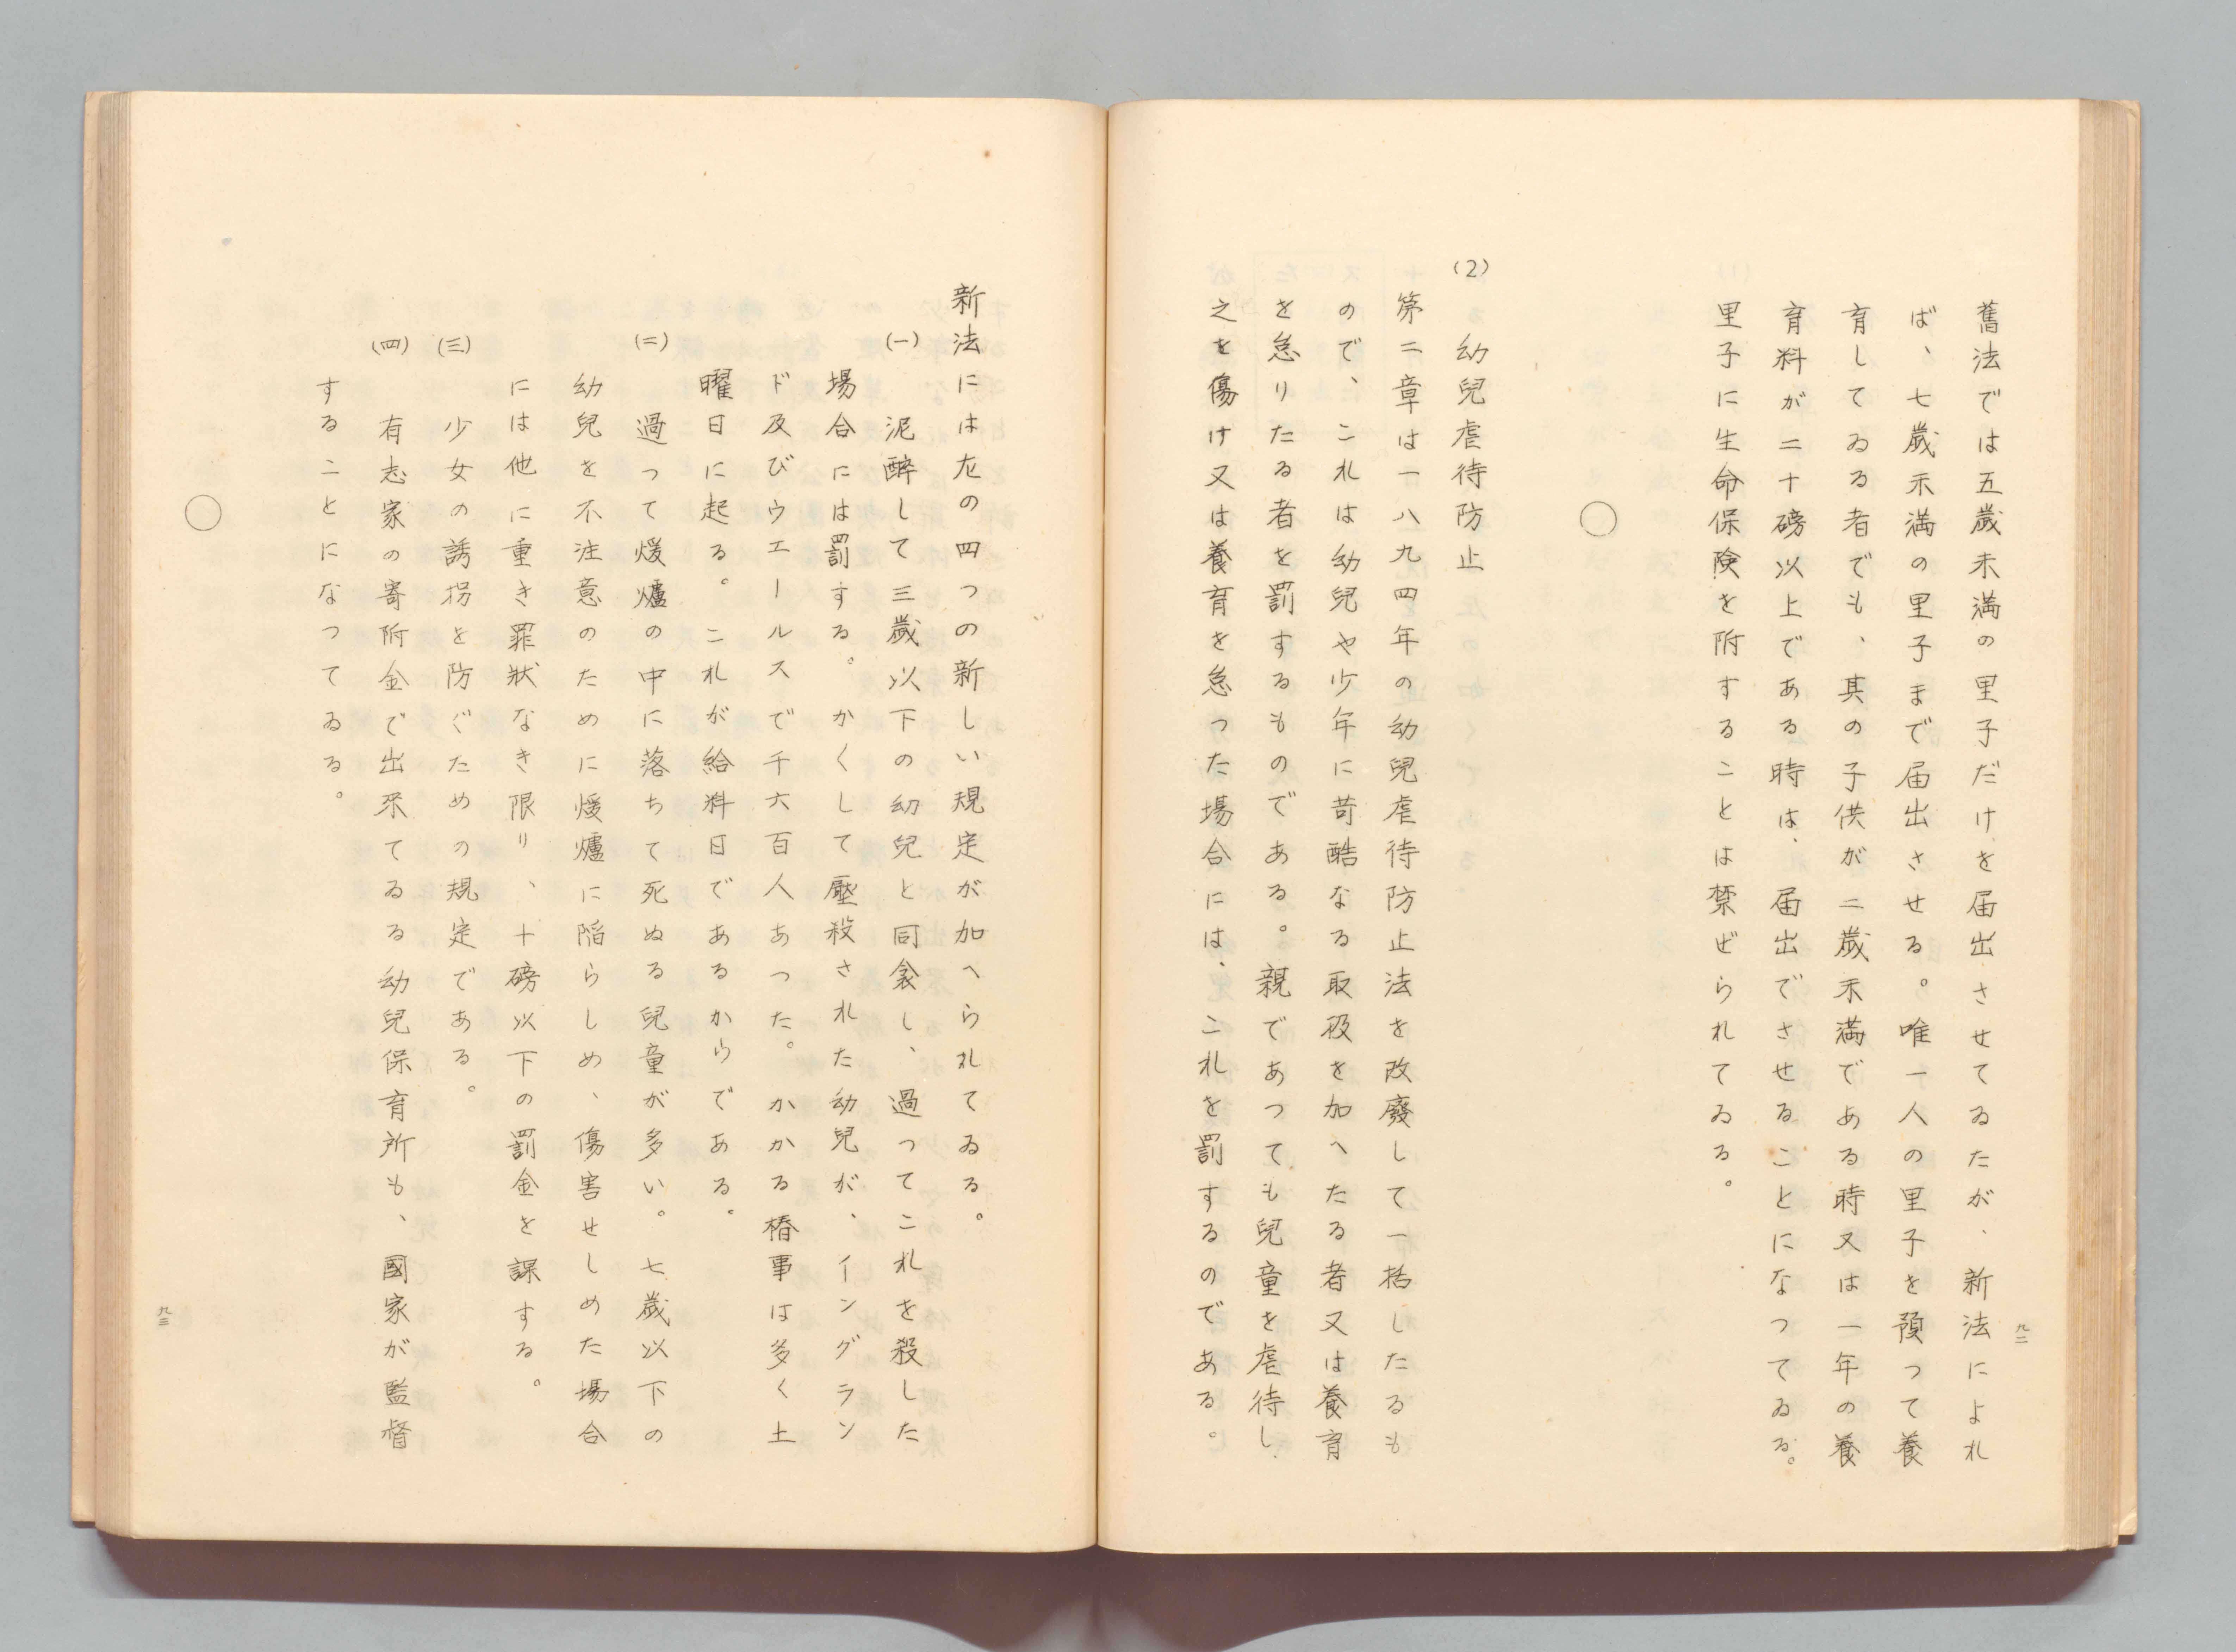 舊法では五歲未満の里子だけを届出させてゐたが、新法によれ
ば、七歲未満の里子まで届出させる。唯一人の里子を預つて養
育してゐる者でも、其の子供が二歲未満である時又は一年の養
育料が二十磅以上である時は、届出でさせることになつてゐる。
里子に生命保険を附することは禁ぜられてゐる。
○
(2) 幼兒虐待防止
第二章は一八九四年の幼兒虐待防止法を改廢して一括したるも
ので、これは幼兒や少年に苛酷なる取扱を加へたる者又は養育
を怠りたる者を罰するものである。親であつても兒童を虐待し
之を傷け又は養育を怠つた場合には、これを罰するのである。
九二
新法には左の四つの新しい規定が加へられてゐる。
(一) 泥醉して三歲以下の幼兒と同衾し、過つてこれを殺した
場合には罰する。かくして壓殺された幼兒が、イングラン
ド及びウエールスで千六百人あつた。かかる椿事は多く土
曜日に起る。これが給料日であるからである。
(二) 過つて煖爐の中に落ちて死ぬる兒童が多い。七歲以下の
幼兒を不注意のために煖爐に陥らしめ、傷害せしめた場合
には他に重き罪狀なき限り、十磅以下の罰金を課する。
(三) 少女の誘拐を防ぐための規定である。
(四) 有志家の寄附金で出來てゐる幼兒保育所も、國家が監督
することになつてゐる。
○
九三